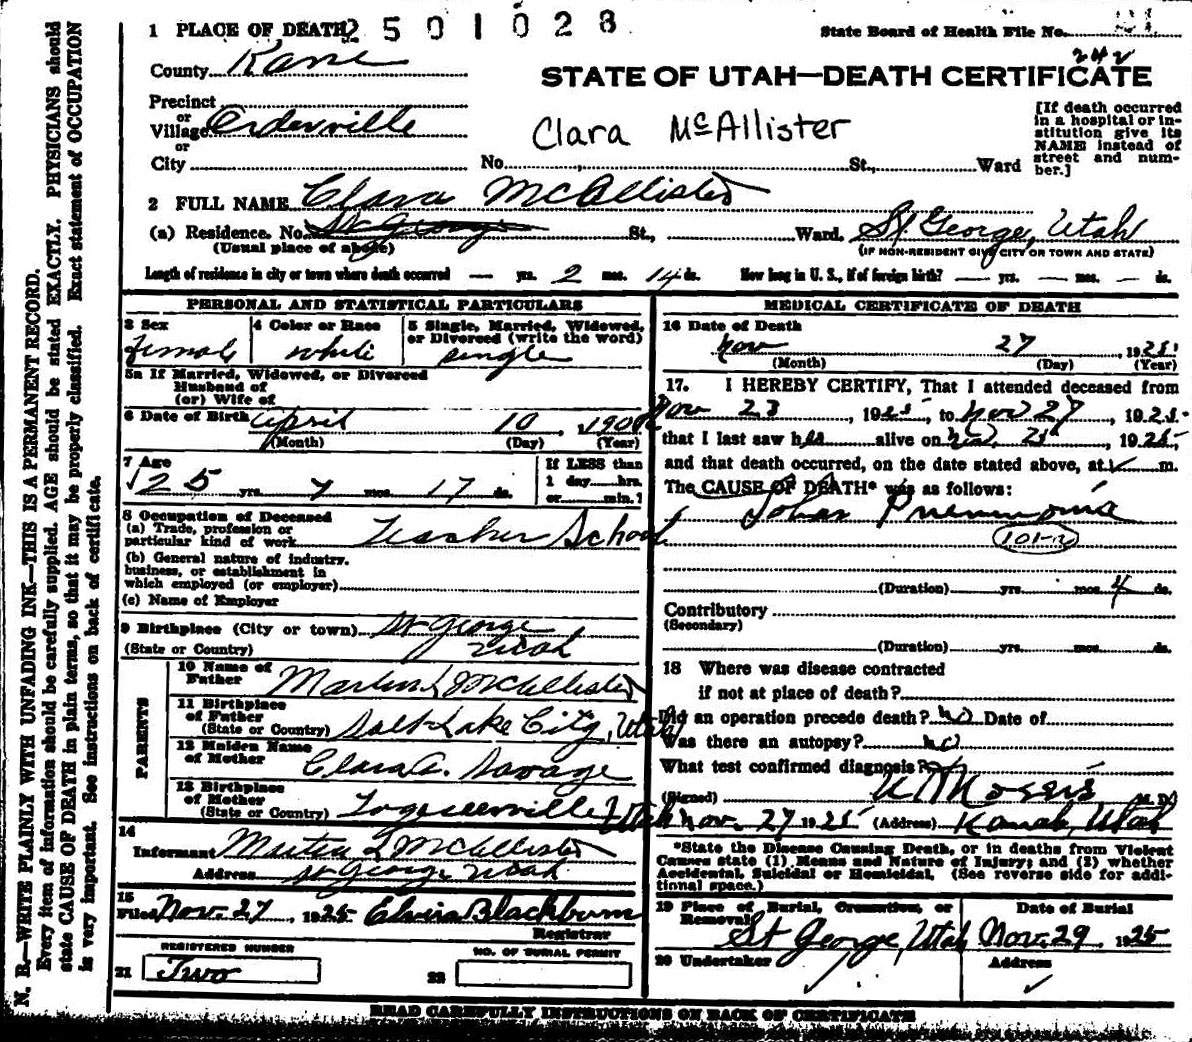 N. B.—WRITE PLAINLY WITH UNFADING INK—THIS IS A PERMANENT RECORD.
Every item of information should be carefully supplied. AGE should be stated EXACTLY. PHYSICIANS should
state CAUSE OF DEATH in plain terms, so that it may be properly classified. Exact statement of OCCUPATION
is very important. See instructions on back of certificate.
2501028
State Board of Health File No. 21
242
STATE OF UTAH—DEATH CERTIFICATE
1 PLACE OF DEATH
County Kane
Precinct
or
Village Orderville
or
City No. St., Ward
Clara McAllister
[If death occurred
in a hospital or in-
stitution give its
NAME instead of
street and num-
ber.]
2 FULL NAME Clara McAllister
(a) Residence. No. St George St., Ward. St George, Utah
(Usual place of abode) (IF NON-RESIDENT GIVE CITY OR TOWN AND STATE)
Length of residence in city or town where death occurred — yrs. 2 mos. 14 ds. How long in U. S., if of foreign birth? — yrs. — mos. — ds.
PERSONAL AND STATISTICAL PARTICULARS
3 Sex
female
4 Color or Race
white
5 Single, Married, Widowed,
or Divorced (write the word)
single
5a If Married, Widowed, or Divorced
Husband of
(or) Wife of
6 Date of Birth April 10, 1900
(Month) (Day) (Year)
7 Age
25 yrs. 7 mos. 17 ds.
If LESS than
1 day hrs.
or min.?
8 Occupation of Deceased
(a) Trade, profession or
particular kind of work Teacher School
(b) General nature of industry,
business, or establishment in
which employed (or employer)
(c) Name of Employer
9 Birthplace (City or town) St George
(State or Country) Utah
PARENTS
10 Name of
Father Martin L McAllister
11 Birthplace
of Father
(State or Country) Salt Lake City, Utah
12 Maiden Name
of Mother Clara A. Savage
13 Birthplace
of Mother
(State or Country) Toqueerville Utah
14
Informant L McAllister
Address St George Utah
15
Filed Nov. 27, 1925 Elvira Blackburn
Registrar
REGISTERED NUMBER
21 Two
NO. OF BURIAL PERMIT
22
MEDICAL CERTIFICATE OF DEATH
16 Date of Death
Nov 27, 1925
(Month) (Day) (Year)
17. I HEREBY CERTIFY, That I attended deceased from
Nov 23, 1925, to Nov 27, 1925
that I last saw her alive on Nov, 25, 1925,
and that death occurred, on the date stated above, at m.
The CAUSE OF DEATH* was as follows:
Lobar Pneumonia
101-a
(Duration) yrs. mos. 4 ds.
Contributory
(Secondary)
(Duration) yrs. mos. ds.
18 Where was disease contracted
if not at place of death?
Did an operation precede death? No Date of
Was there an autopsy? no
What test confirmed diagnosis?
(Signed) Norris M.D.
Nov. 27 1925 (Address) Kanab, Utah
*State the Disease Causing Death, or in deaths from Violent
Causes state (1) Means and Nature of Injury; and (2) whether
Accidental, Suicidal or Homicidal. (See reverse side for addi-
tional space.)
19 Place of Burial, Cremation, or
Removal
St George, Utah
Date of Burial
Nov. 29, 1925
20 Undertaker
Address
READ CAREFULLY INSTRUCTIONS ON BACK OF CERTIFICATE